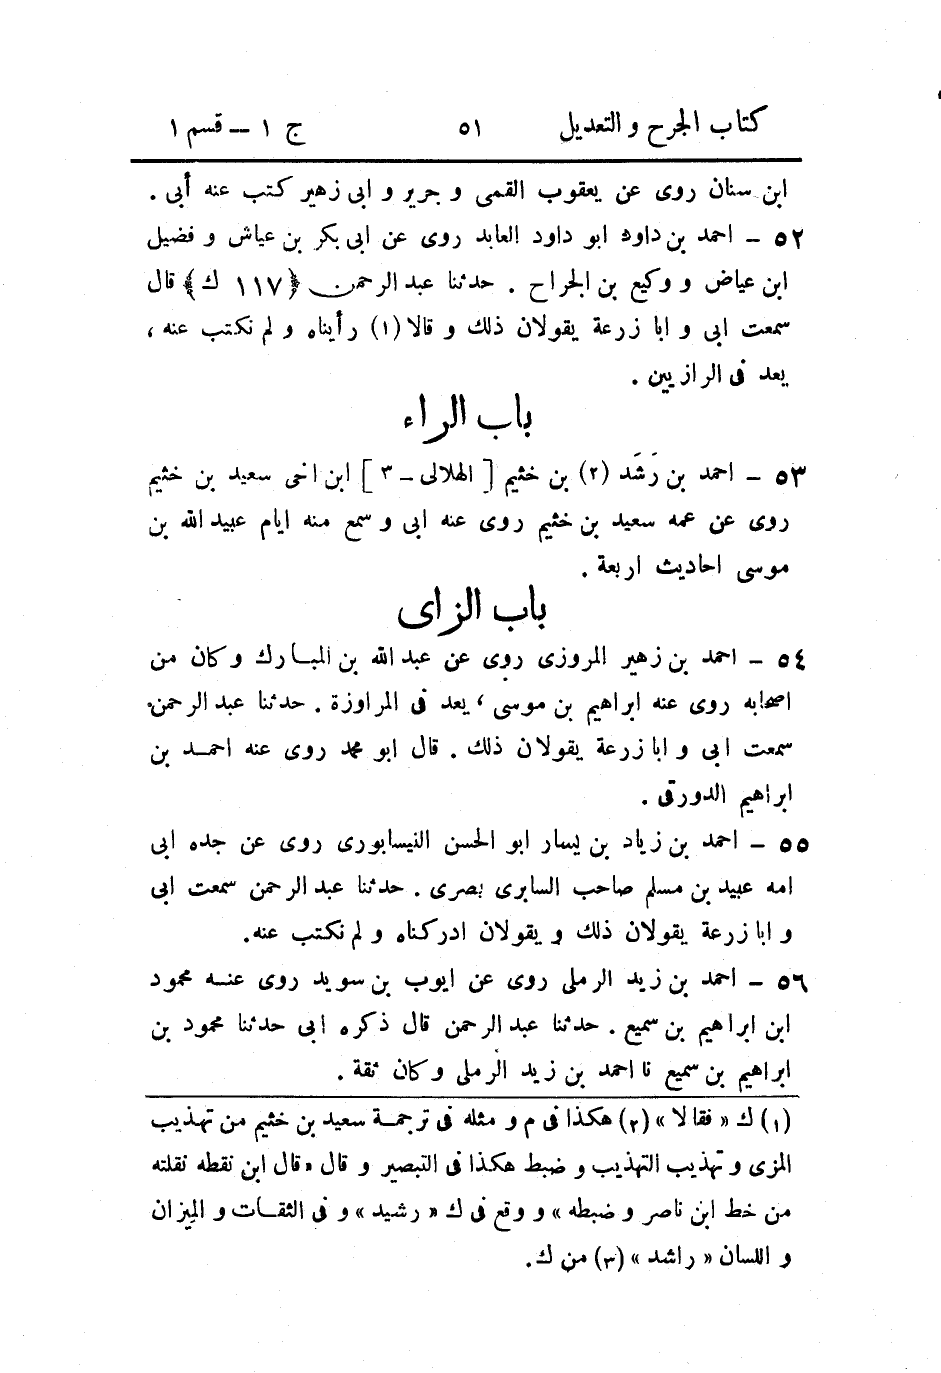 كتاب الجرح و التعديل ٥١ ج ١ – قسم ١
ابن سنان روى عن يعقوب القمى و جرير و ابى زهير كتب عنه أبى .
٥٢ – احمد بن داود ابو داود العابد روى عن ابى بكر بن عياش و فضيل
ابن عياض و وكيع بن الجراح . حدثنا عبد الرحمن ﴿١١٧ ك﴾ قال
سمعت ابى و ابا زرعة يقولان ذلك و قالا (١) رأيناه و لم نكتب عنه ،
يعد فى الرازيين .
باب الراء
٥٣ – احمد بن رَشَد (٢) بن خثيم [ الهلالى – ٣ ] ابن اخى سعيد بن خثيم
روى عن عمه سعيد بن خثيم روى عنه ابى و سمع منه ايام عبيد الله بن
موسى احاديث اربعة .
باب الزاى
٥٤ – احمد بن زهير المروزى روى عن عبد الله بن المبارك وكان من
اصحابه روى عنه ابراهيم بن موسى ، يعد فى المراوزة . حدثنا عبد الرحمن
سمعت ابى و ابا زرعة يقولان ذلك . قال ابو محمد روى عنه احمد بن
ابراهيم الدورقى .
٥٥ – احمد بن زياد بن يسار ابو الحسن النيسابورى روى عن جده ابى
امه عبيد بن مسلم صاحب السابرى بصرى . حدثنا عبد الرحمن سمعت ابى
و ابا زرعة يقولان ذلك و يقولان ادركناه و لم نكتب عنه.
٥٦ – احمد بن زيد الرملى روى عن ايوب بن سويد روى عنه محمود
ابن ابراهيم بن سميع . حدثنا عبد الرحمن قال ذكره ابى حدثنا محمود بن
ابراهيم بن سميع نا احمد بن زيد الرملى وكان ثقة .
(١) ك « فقالا » (٢) هكذا فى م و مثله فى ترجمة سعيد بن خثيم من تهذيب
المزى و تهذيب التهذيب و ضبط هكذا فى التبصير و قال « قال ابن نقطه نقلته
من خط ابن ناصر و ضبطه » و وقع فى ك « رشيد » و فى الثقات و الميزان
و اللسان « راشد » (٣) من ك .